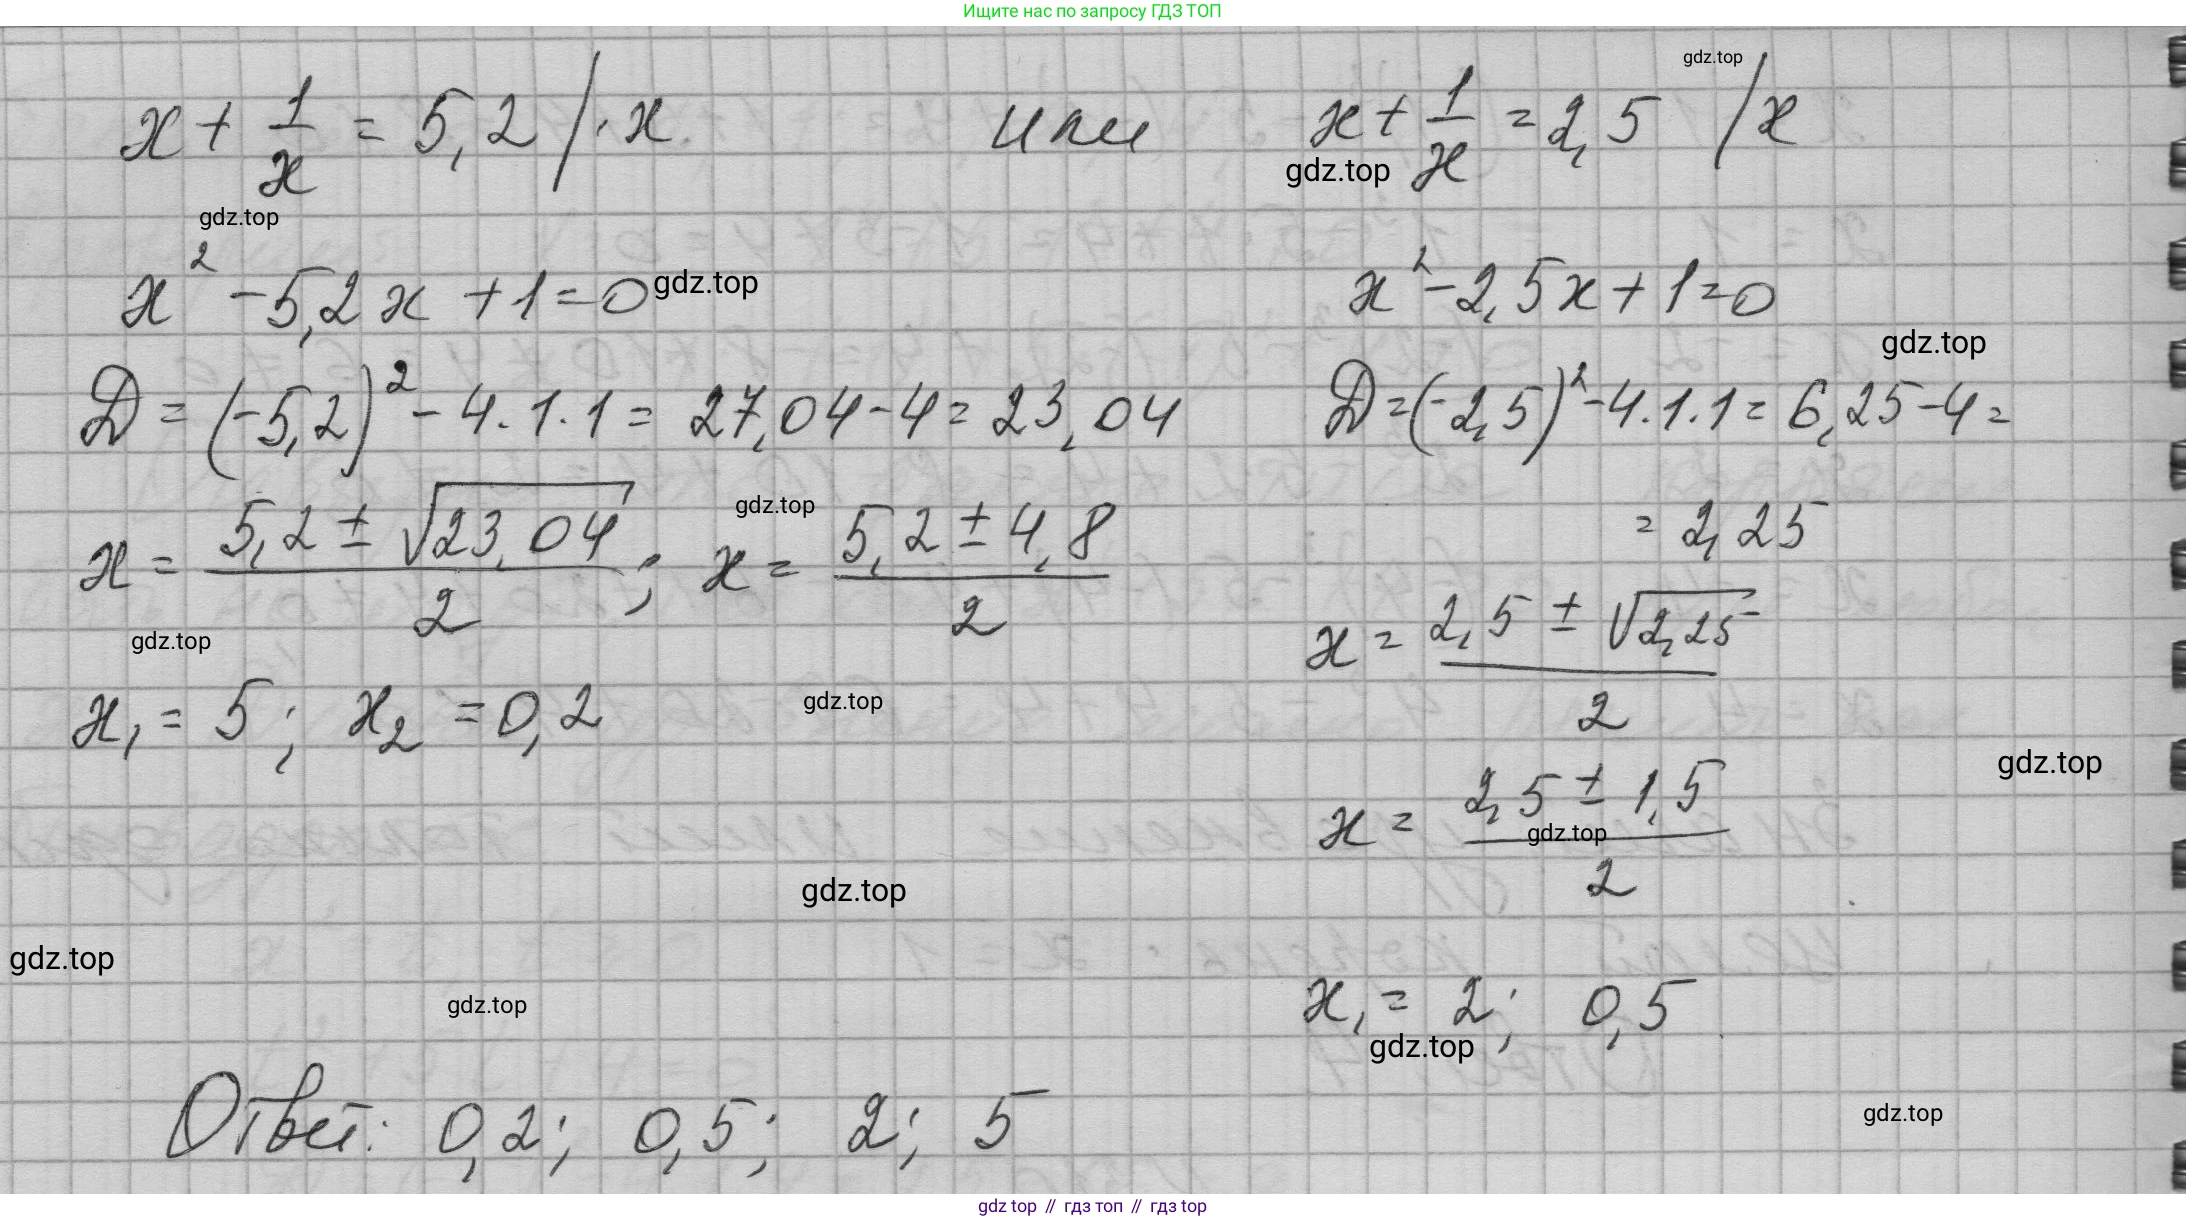 Ищите нас по запросу ГДЗ ТОП
gdz.top
x + 1/x = 5,2 / · x или x + 1/x = 2,5 / x
gdz.top
gdz.top
x² - 5,2x + 1 = 0 x² - 2,5x + 1 = 0
gdz.top
gdz.top
D = (-5,2)² - 4·1·1 = 27,04 - 4 = 23,04 D = (-2,5)² - 4·1·1 = 6,25 - 4 =
gdz.top
x = (5,2 ± √23,04)/2 ; x = (5,2 ± 4,8)/2 = 2,25
gdz.top
x = (2,5 ± √2,25)/2
x₁ = 5; x₂ = 0,2
gdz.top
gdz.top
x = (2,5 ± 1,5)/2
gdz.top
gdz.top
gdz.top
gdz.top
x₁ = 2; 0,5
gdz.top
gdz.top
Ответ: 0,2; 0,5; 2; 5
gdz top // гдз топ // gdz top